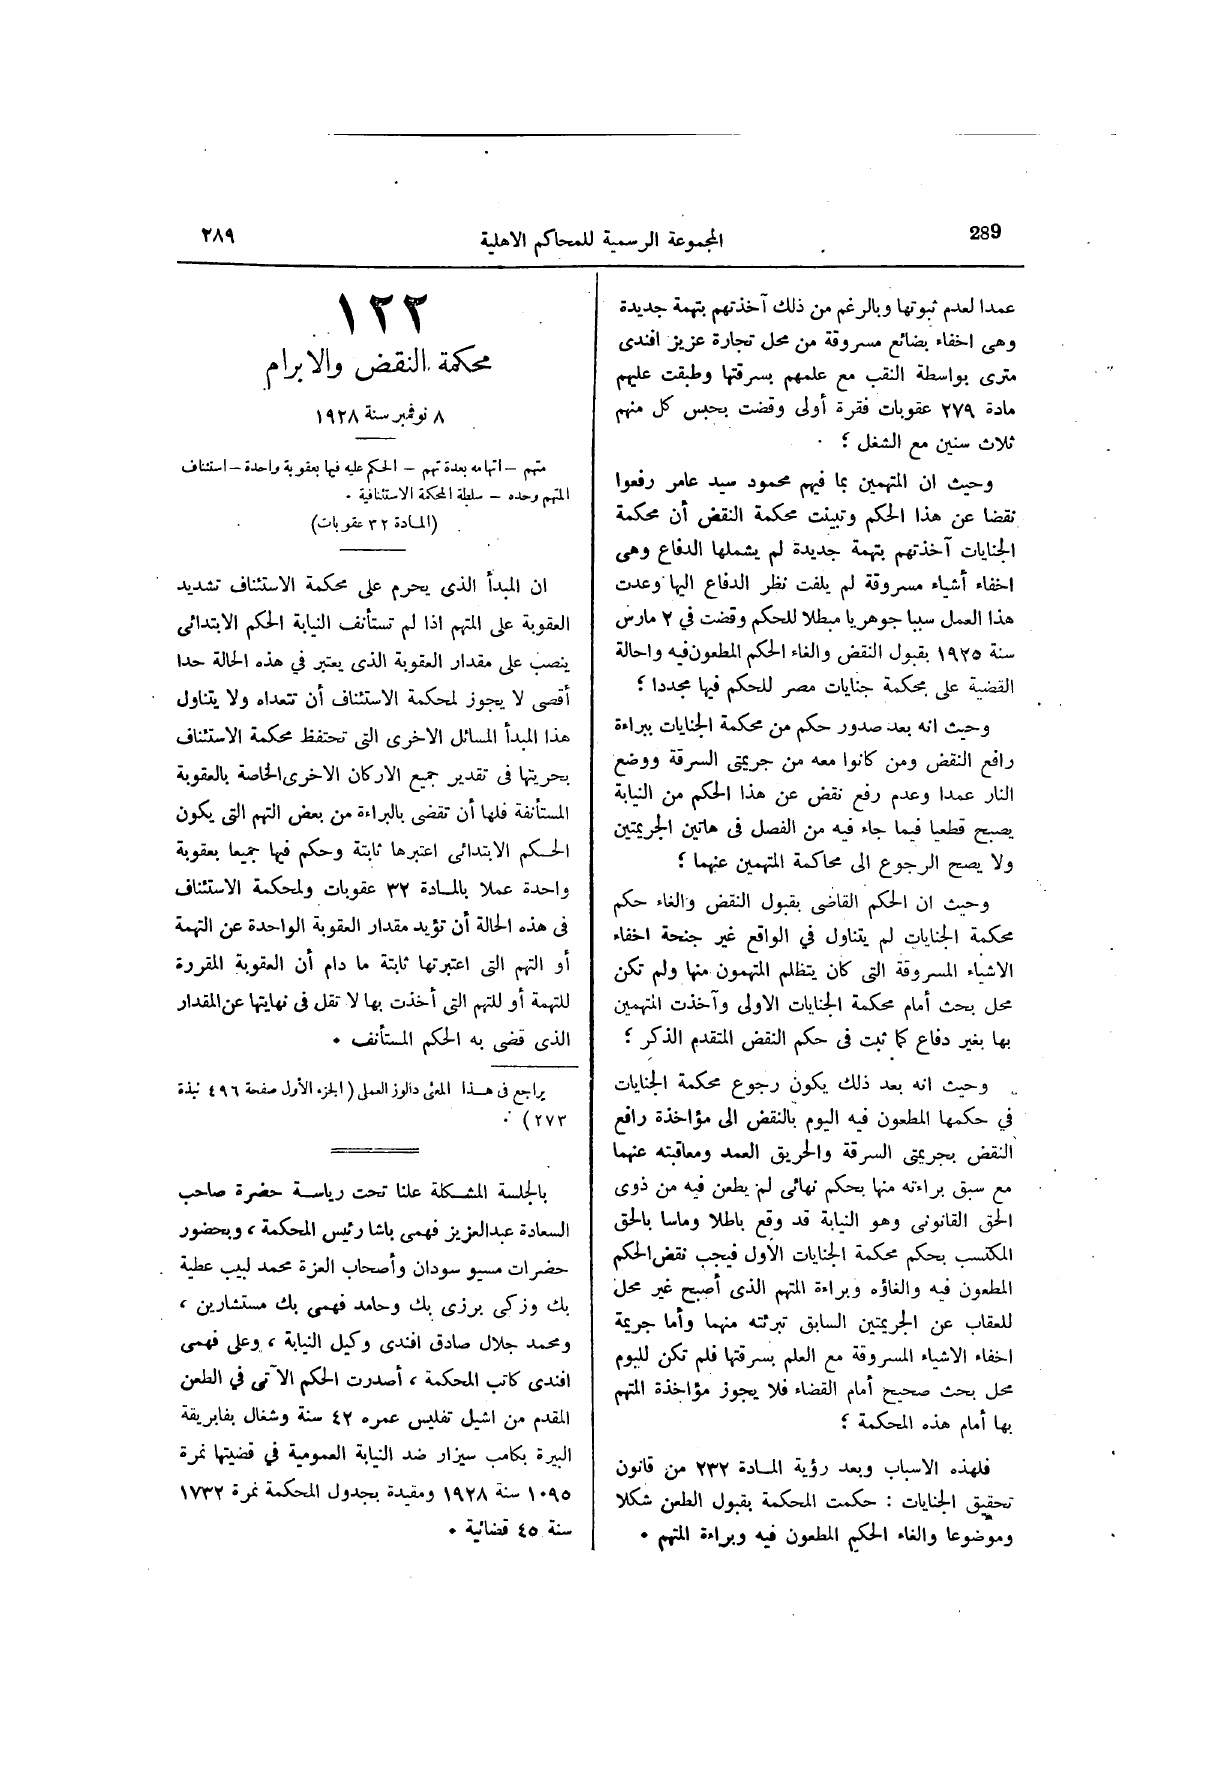 289
المجموعة الرسمية للمحاكم الاهلية
٢٨٩
عمدا لعدم ثبوتها وبالرغم من ذلك آخذتهم بتهمة جديدة
وهى اخفاء بضائع مسروقة من محل تجارة عزيز افندى
مترى بواسطة النقب مع علمهم بسرقتها وطبقت عليهم
مادة ٢٧٩ عقوبات فقرة أولى وقضت بحبس كل منهم
ثلاث سنين مع الشغل ؛
وحيث ان المتهمين بما فيهم محمود سيد عامر رفعوا
نقضا عن هذا الحكم وتبينت محكمة النقض أن محكمة
الجنايات آخذتهم بتهمة جديدة لم يشملها الدفاع وهى
اخفاء أشياء مسروقة لم يلفت نظر الدفاع اليها وعدت
هذا العمل سببا جوهريا مبطلا للحكم وقضت في ٢ مارس
سنة ١٩٢٥ بقبول النقض والغاء الحكم المطعون فيه واحالة
القضية على محكمة جنايات مصر للحكم فيها مجددا ؛
وحيث انه بعد صدور حكم من محكمة الجنايات ببراءة
رافع النقض ومن كانوا معه من جريمتى السرقة ووضع
النار عمدا وعدم رفع نقض عن هذا الحكم من النيابة
يصبح قطعيا فيما جاء فيه من الفصل فى هاتين الجريمتين
ولا يصح الرجوع الى محاكمة المتهمين عنهما ؛
وحيث ان الحكم القاضى بقبول النقض والغاء حكم
محكمة الجنايات لم يتناول في الواقع غير جنحة اخفاء
الاشياء المسروقة التى كان يتظلم المتهمون منها ولم تكن
محل بحث أمام محكمة الجنايات الاولى وآخذت المتهمين
بها بغير دفاع كما ثبت فى حكم النقض المتقدم الذكر ؛
وحيث انه بعد ذلك يكون رجوع محكمة الجنايات
في حكمها المطعون فيه اليوم بالنقض الى مؤاخذة رافع
النقض بجريمتى السرقة والحريق العمد ومعاقبته عنهما
مع سبق براءته منها بحكم نهائى لم يطعن فيه من ذوى
الحق القانونى وهو النيابة قد وقع باطلا وماسا بالحق
المكتسب بحكم محكمة الجنايات الأول فيجب نقض الحكم
المطعون فيه والغاؤه وبراءة المتهم الذى أصبح غير محل
للعقاب عن الجريمتين السابق تبرئته منهما وأما جريمة
اخفاء الاشياء المسروقة مع العلم بسرقتها فلم تكن لليوم
محل بحث صحيح أمام القضاء فلا يجوز مؤاخذة المتهم
بها أمام هذه المحكمة ؛
فلهذه الاسباب وبعد رؤية المادة ٢٣٢ من قانون
تحقيق الجنايات : حكمت المحكمة بقبول الطعن شكلا
وموضوعا والغاء الحكم المطعون فيه وبراءة المتهم .
١٢٢
محكمة النقض والابرام
٨ نوفمبر سنة ١٩٢٨
متهم — اتهامه بعدة تهم — الحكم عليه فيها بعقوبة واحدة — استئناف
المتهم وحده — سلطة المحكمة الاستئنافية .
(المادة ٣٢ عقوبات)
ان المبدأ الذى يحرم على محكمة الاستئناف تشديد
العقوبة على المتهم اذا لم تستأنف النيابة الحكم الابتدائى
ينصب على مقدار العقوبة الذى يعتبر في هذه الحالة حدا
أقصى لا يجوز لمحكمة الاستئناف أن تتعداه ولا يتناول
هذا المبدأ المسائل الاخرى التى تحتفظ محكمة الاستئناف
بحريتها فى تقدير جميع الاركان الاخرى الخاصة بالعقوبة
المستأنفة فلها أن تقضى بالبراءة من بعض التهم التى يكون
الحكم الابتدائى اعتبرها ثابتة وحكم فيها جميعا بعقوبة
واحدة عملا بالمادة ٣٢ عقوبات ولمحكمة الاستئناف
فى هذه الحالة أن تؤيد مقدار العقوبة الواحدة عن التهمة
أو التهم التى اعتبرتها ثابتة ما دام أن العقوبة المقررة
للتهمة أو للتهم التى أخذت بها لا تقل فى نهايتها عن المقدار
الذى قضى به الحكم المستأنف .
يراجع فى هذا المعنى دالوز العملى (الجزء الأول صفحة ٤٩٦ نبذة
٢٧٣) .
بالجلسة المشكلة علنا تحت رياسة حضرة صاحب
السعادة عبد العزيز فهمى باشا رئيس المحكمة ، وبحضور
حضرات مسيو سودان وأصحاب العزة محمد لبيب عطية
بك وزكى برزى بك وحامد فهمى بك مستشارين ،
ومحمد جلال صادق افندى وكيل النيابة ، وعلى فهمى
افندى كاتب المحكمة ، أصدرت الحكم الآتى في الطعن
المقدم من اشيل تفليس عمره ٤٢ سنة وشغال بفابريقة
البيرة بكامب سيزار ضد النيابة العمومية في قضيتها نمرة
١٠٩٥ سنة ١٩٢٨ ومقيدة بجدول المحكمة نمرة ١٧٣٢
سنة ٤٥ قضائية .